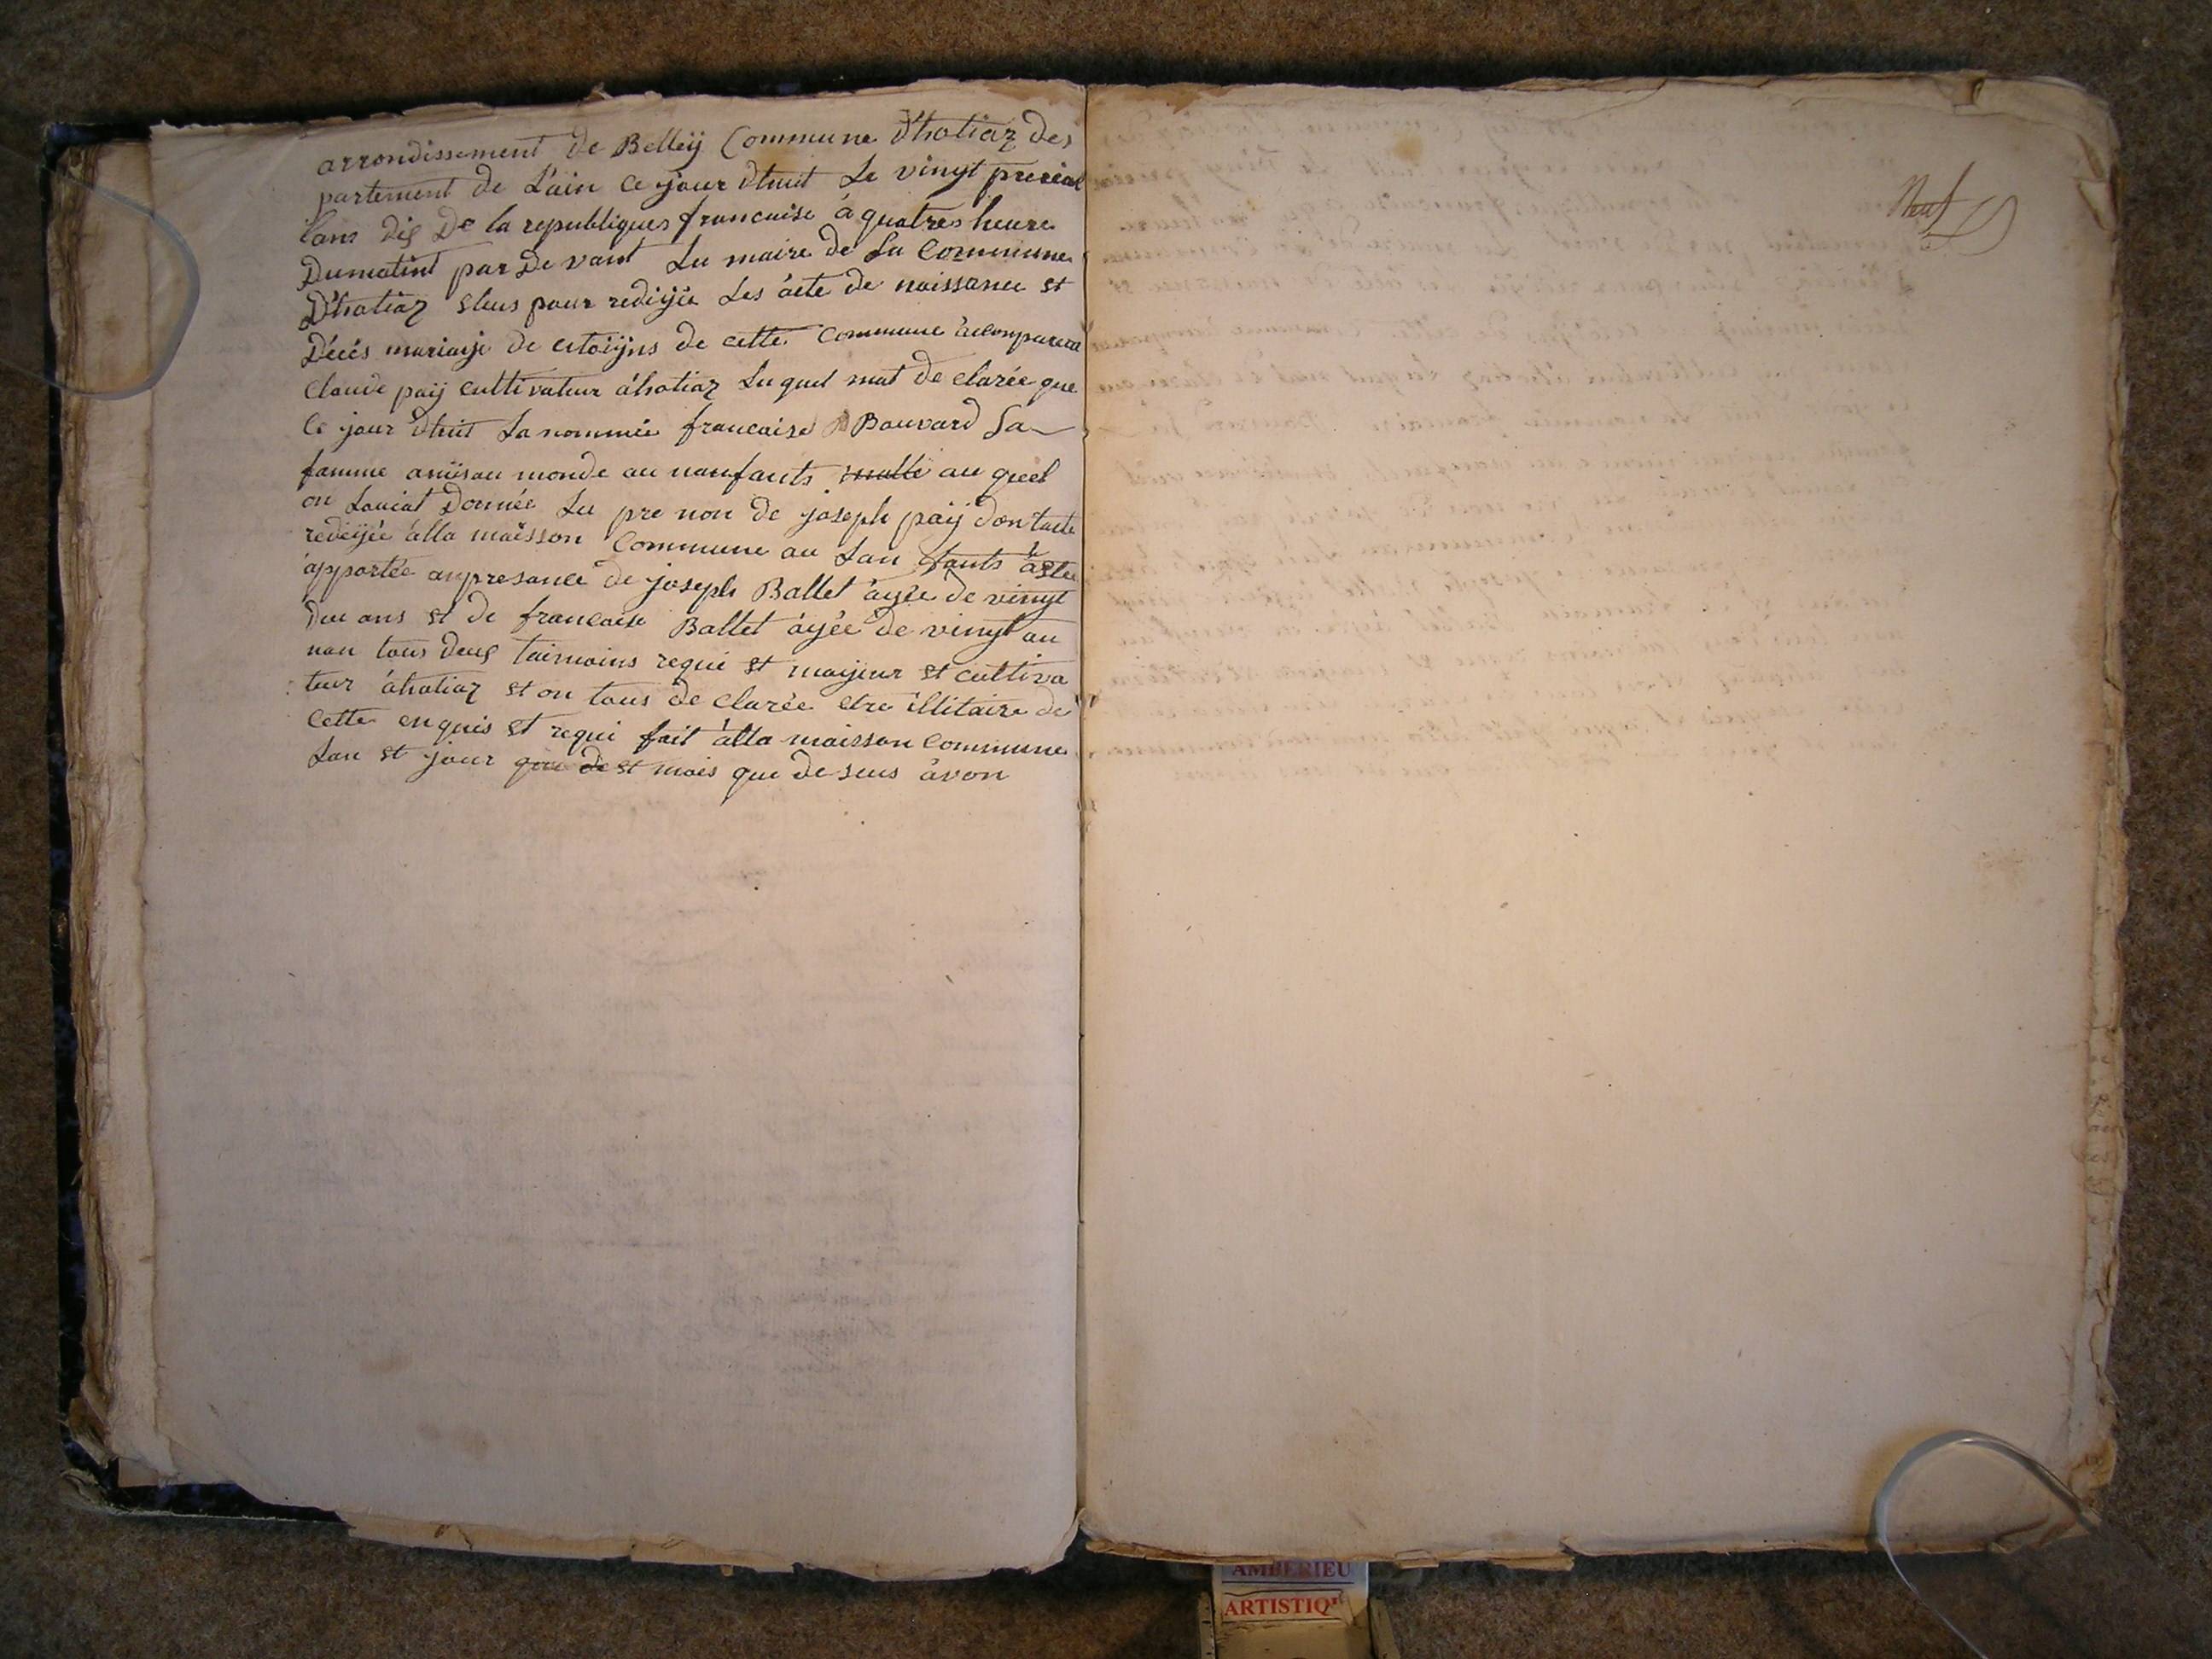 arrondissement de Belleÿ Commune d'hotiaz des
partement de L'ain ce jour dhuit Le vingt prerial
lans dix De la republiques francaise à quatres heure
Dumatint par De vant Lu maire de La Commune
D'hotiaz eleus pour redigée Les àcte de naissance et
Décés mariage de citoiÿns de cette Commune
Claude paÿ cultivateur àhotiaz Lu quel mat de clarée que
ce jour dhuit La nommée francaise Bouvard Sa
famme amisau monde au nanfants malle au quel
on Donnée Lu pre non de joseph paÿ dontacte
redigée àlla maisson Commune au Lan fants
àpportée anpresance de joseph Ballet àgée de vingt
deu ans et de francaise Ballet àgée de vingt au
nan tous deux taimoins requi et majeur et cultiva
teur àhotiaz et on tous de clarée etre illitaire de
Cette enquis et requi fait àlla maisson Commune
Lan et jour que de et mois que de seus àvon
Neuf
AMBERIEU
ARTISTIQ